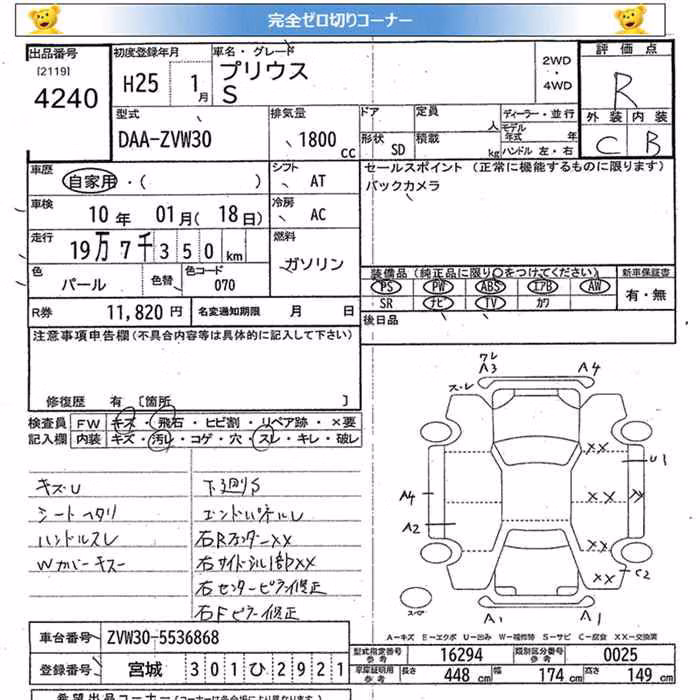 完全ゼロ切りコーナー
出品番号
[2119]
4240
初度登録年月
H25 1月
車名・グレード
プリウス
S
2WD
・
4WD
評価点
R
外装 内装
C B
型式
DAA-ZVW30
排気量
1800 CC
ドア
定員 人
形状 SD
積載 kg
ディーラー・並行
モデル年式 年
ハンドル 左・右
車歴
自家用・( )
シフト
AT
セールスポイント (正常に機能するものに限ります)
バックカメラ
車検
10年 01月(18日)
冷房
AC
走行
19万7千350km
燃料
ガソリン
色
パール
色替
色コード
070
装備品(純正品に限り○をつけてください)
PS PW ABS エアB AW
SR ナビ TV カワ
新車保証書
有・無
R券 11,820円
名変通知期限 月 日
後日品
注意事項申告欄(不具合内容等は具体的に記入して下さい)
修復歴 有 [箇所 ]
検査員 FW キズ・飛石・ヒビ割・リペア跡・×要
記入欄 内装 キズ・汚レ・コゲ・穴・スレ・キレ・破レ
キズU
シートヘタリ
ハンドルスレ
Wカバーキズー
下廻りS
エンドパネルU
右RフェンダーXX
右サイドシル1部XX
右センターピラー修正
右Fピラー修正
ワレ
A3
A4
スレ
XX
U1
A4
XX
A2
XX
XX
C2
スペ
A1
A1
A-キズ E-エクボ U-凹み W-補修跡 S-サビ C-腐食 XX-交換済
車台番号 ZVW30-5536868
登録番号 宮城 301ひ2921
型式指定番号 参考 16294
類別区分番号 参考 0025
車庫証明用 参考 長さ 448cm 幅 174cm 高さ 149cm
希望出品コーナー